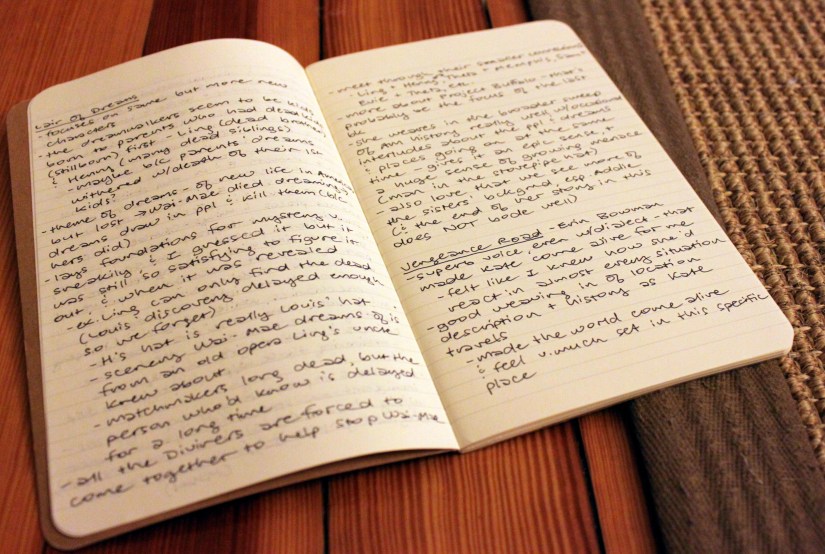 Lair of Dreams
- focuses on same but more new
characters
- the dreamwalkers seem to be kids
born to parents who had dead kids
(stillborn) first - Ling (dead brother)
& Henry (many dead siblings)
- maybe b/c parents' dreams
withered w/death of their 1st
kids?
- theme of dreams - of new life in
but lost → Wai-Mae died dreaming of
dreams draw in ppl & kill them (b/c
hers did)
- lays foundations for mystery v.
sneakily & I guessed it but it
was still so satisfying to figure it
out & when it was revealed
- ex. Ling can only find the dead
(Louis discovery delayed enough
so we forget)
- H's hat is really Louis' hat
- scenery Wai-Mae dreams of is
from an old opera Ling's uncle
knew about
- matchmakers long dead, but the
person who'd know is delayed
for a long time
- all the Diviners are forced to
come together to help stop Wai-Mae
- meet through their smaller connections
- Ling + Henry, Theta + Memphis, Sam +
Evie + Theta, etc.
- more about Project Buffalo - that'll
probably be the focus of the last
bk
- she weaves in the broader sweep
of Am history really well w/occasional
interludes about the ppl & dreams
& places going on at the same
time - gives it an epic sense &
a huge sense of growing menace
(man in the stovepipe hat)
- also love that we see more of
the sisters' bckgrnd esp. Adelaide
(& the end of her story in this
does NOT bode well)
Vengeance Road - Erin Bowman
- superb voice, even w/dialect - that
made Kate come alive for me
- felt like I knew how she'd
react in almost every situation
- good weaving in of location
description + history as Kate
travels
- made the world come alive
& feel v. much set in this specific
place